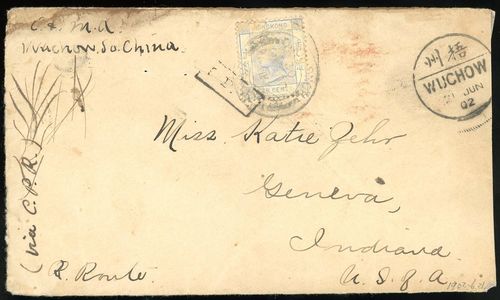 C. & M. A.
Wuchow, So. China.
HONGKONG
州 梧
WUCHOW
21 JUN
02
Miss Katie Zehr
Geneva,
Indiana
U. S. A
(via C. P. R.)
R. Route